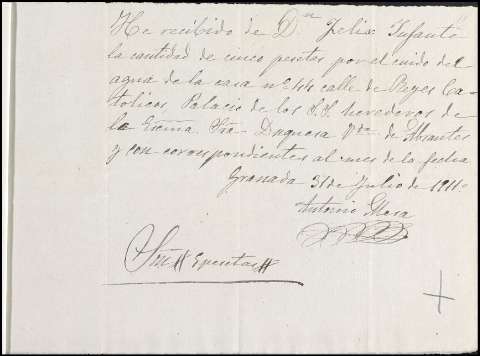 He recibido de Dn Felix Infante
la cantidad de cinco pesetas por el cuido del
agua de la casa nº 44 calle de Reyes Ca-
tolicos Palacio de los S.S. herederos de
la Excma. Sra Duquesa Vda de Abrantes
y son corespondientes al mes de la fecha
Granada 31 de Julio de 1911.
Antonio Mora
Son # 5 pesetas #